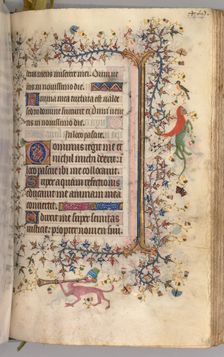 tem veneris miserere mei. Dum ve
in novissimo die.
Anima mea turbata est valde
sed tu domine succurre ei. Dum veneris
in novissimo die.
In loco pascue.
Dominus regit me et
nichil michi deerit: i
loco pascue ibi me collocavit.
Super aquam refectionis
educavit me: animam meam
convertit.
Deduxit me super semitas
iusticie: propter nomen suu